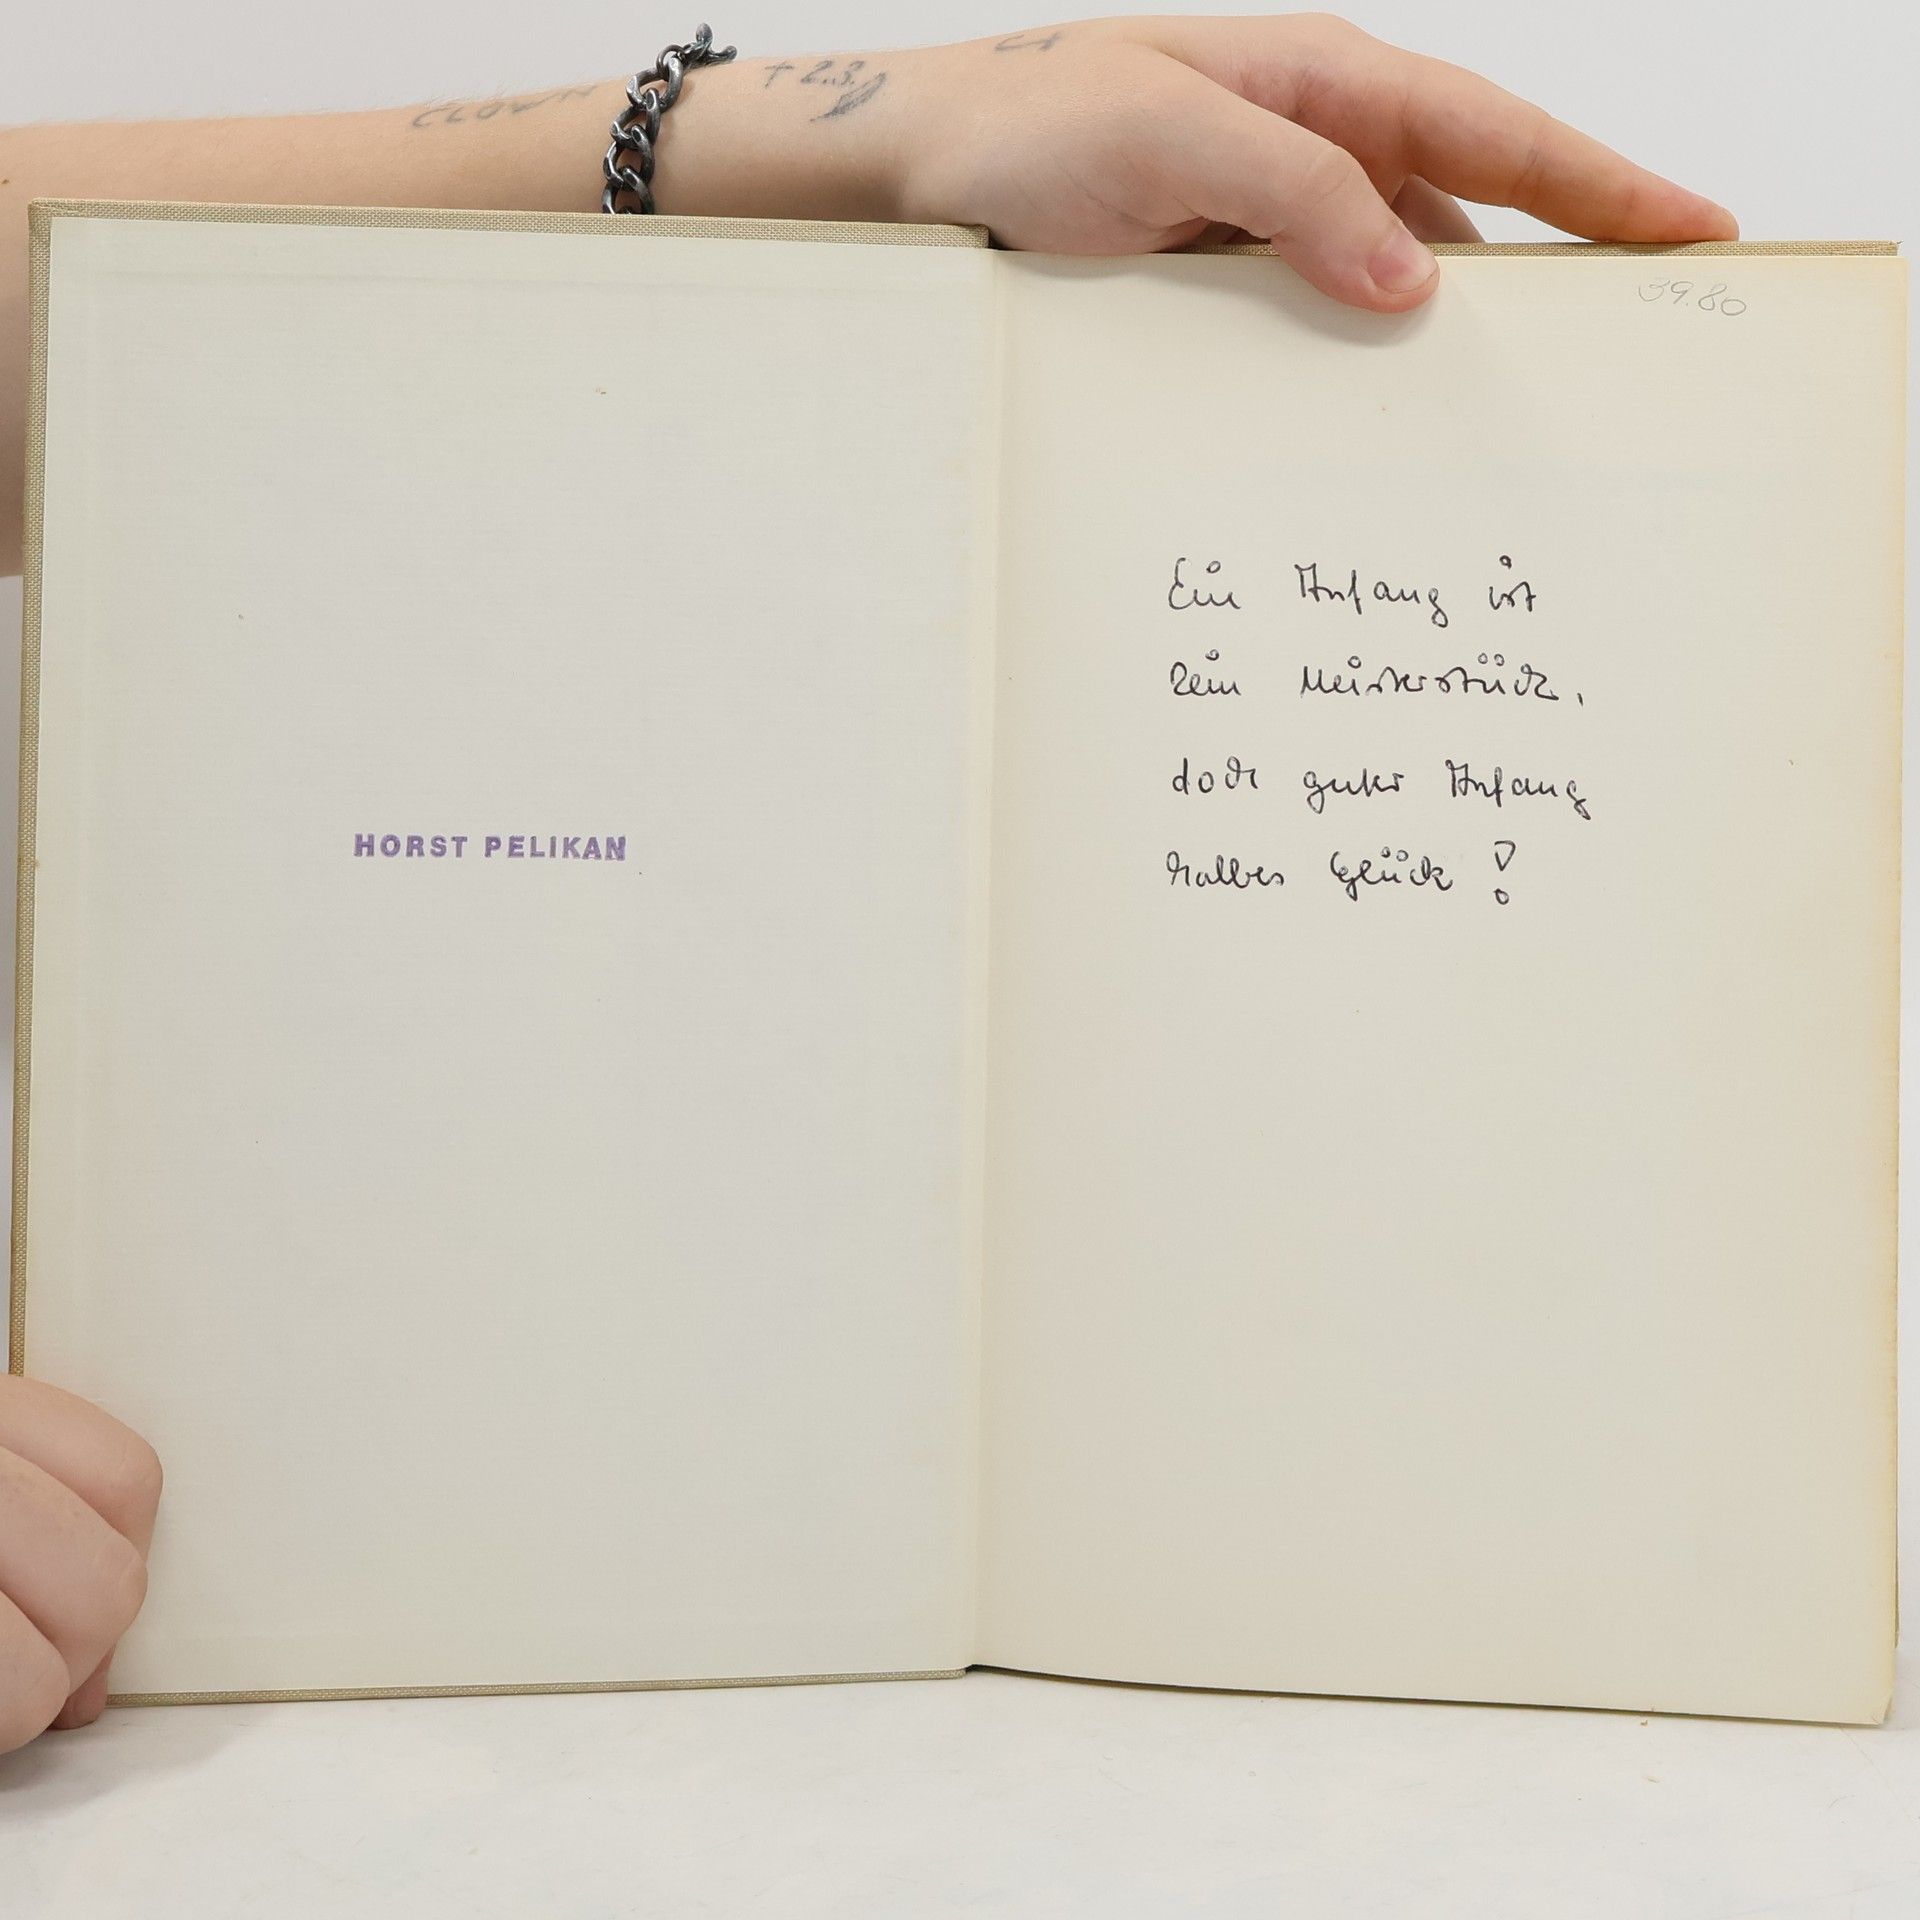 CLOWN
+ 2.3.
HORST PELIKAN
39.80
Ein Anfang ist
kein Meisterstück,
doch guter Anfang
halbes Glück!